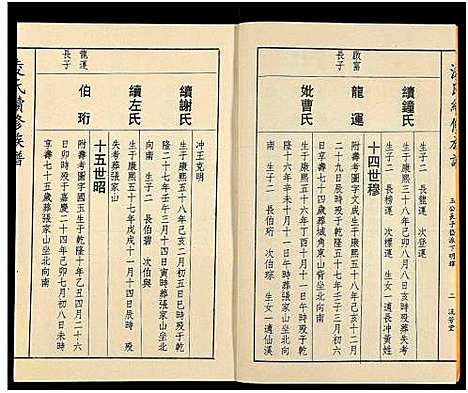 啟富
長子
續鐘氏
生于康熙三十八年己卯八月八日亥時殁失考
生子二 長龍運 次登運
十四世穆
龍運
附壽考圖字文成生于康熙五十八年己亥十二月
二十九日辰時殁于乾隆五十七年壬子三月初六
日享壽七十四歲葬城角東山背坐北向南
妣曹氏
生于康熙五十六年丁酉十月十一日亥時殁于乾
隆十六年辛未十月十一日午時葬張家山坐北向
南 生子三 長伯珩 次伯運
龍運
長子
續謝氏
冲王克明
生于康熙五十八年己亥二月初五日巳時殁于乾
隆二十七年壬午三月十四日寅時葬張家山坐北
向南 生子二 長伯碧 次伯與
續左氏
生于康熙五十七年戊戌十一月十四日辰時 殁
失考葬張家山
十五世昭
伯珩
附壽考圖字國玉生于乾隆十年乙丑四月二十六
日卯時殁于嘉慶二十四年己卯七月初八日未時
享壽七十五歲葬張家山坐北向南
氏續修族譜